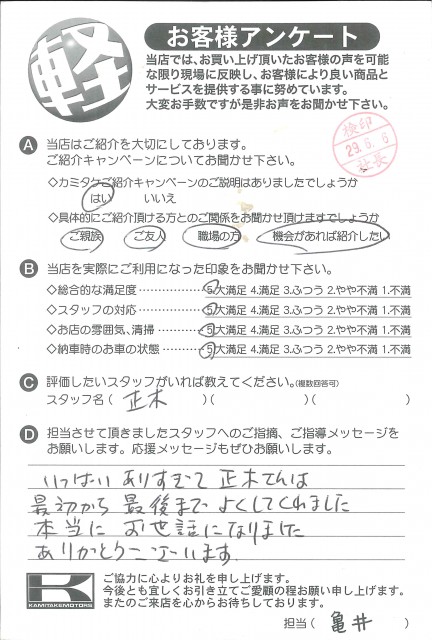 軽
お客様アンケート
当店では、お買い上げ頂いたお客様の声を可能
な限り現場に反映し、お客様により良い商品と
サービスを提供する事に努めています。
大変お手数ですが是非お声をお聞かせ下さい。
検印
29.8.6
社長
A 当店はご紹介を大切にしております。
ご紹介キャンペーンについてお聞かせ下さい。
◇カミタケご紹介キャンペーンのご説明はありましたでしょうか
はい いいえ
◇具体的にご紹介頂ける方とのご関係をお聞かせ頂けますでしょうか
ご親族 ご友人 職場の方 機会があれば紹介したい
B 当店を実際にご利用になった印象をお聞かせ下さい。
◇総合的な満足度 5.大満足 4.満足 3.ふつう 2.やや不満 1.不満
◇スタッフの対応 5.大満足 4.満足 3.ふつう 2.やや不満 1.不満
◇お店の雰囲気、清掃 5.大満足 4.満足 3.ふつう 2.やや不満 1.不満
◇納車時のお車の状態 5.大満足 4.満足 3.ふつう 2.やや不満 1.不満
C 評価したいスタッフがいれば教えてください。(複数回答可)
スタッフ名( 正木 )( )( )
D 担当させて頂きましたスタッフへのご指摘、ご指導メッセージを
お願いします。応援メッセージもぜひお願いします。
いっぱい ありすぎて 正木さんは
最初から 最後まで よくしてくれました
本当に お世話になりました
ありがとうございます
K KAMITAKEMOTORS
ご協力に心よりお礼を申し上げます。
今後とも宜しくお引き立てご愛顧の程お願い申し上げます。
またのご来店を心からお待ちしております。
担当( 亀井 )